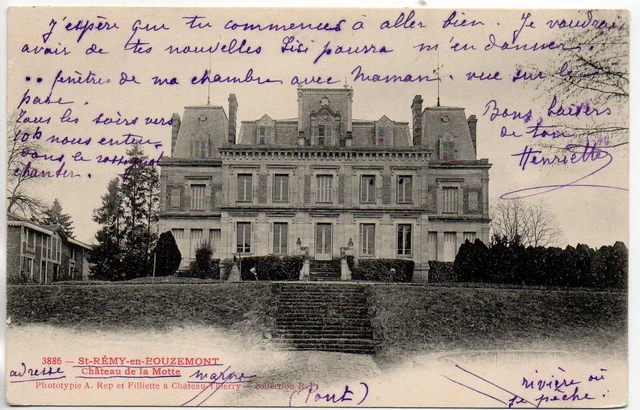 J'espère que tu commences à aller bien. Je voudrai
avoir de tes nouvelles Lili pourra m'en donner.
fenêtres de ma chambre avec Maman. vue sur le
parc.
Tous les soirs vers
10h nous enten
dons le rossignol
chanter.
Bons baisers
de ton
Henriette
3886 - St-RÉMY-en-BOUZEMONT
Château de la Motte
adresse marne
Phototypie A. Rep et Filliette à Château-Thierry - collection R. F.
(Pont)
rivière où
je pêche.